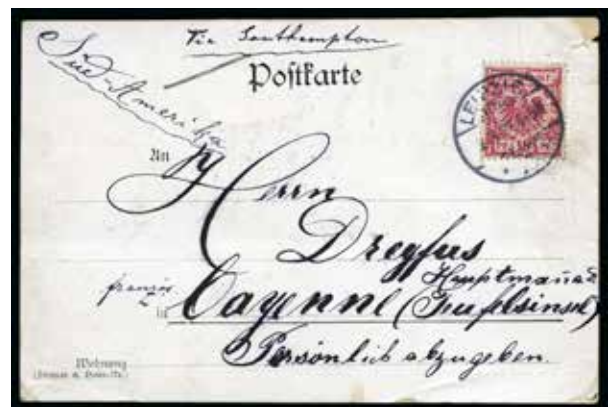 Via Southampton
Süd-Amerika
Postkarte
LEIPZIG
An
Herrn
Dreyfus
Hauptmann a.D.
franzö.
in Cayenne (Teufelsinsel)
Persönlich abzugeben.
Wohnung
(Strasse u. Haus-Nr.)